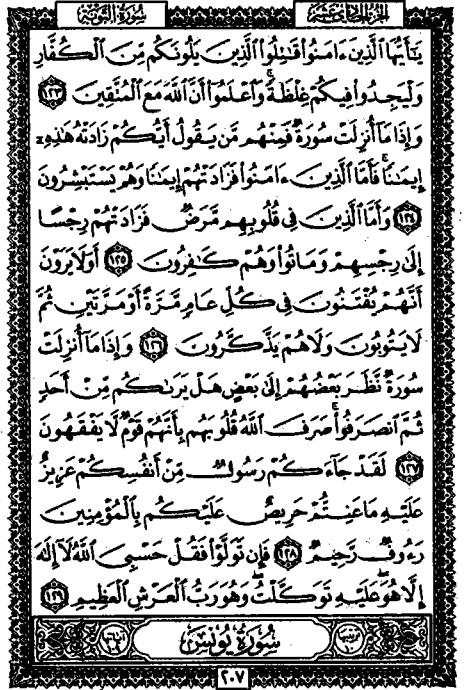 سُورَةُ التَّوْبَةِ
الجزء الحادي عشر
يَٰٓأَيُّهَا ٱلَّذِينَ ءَامَنُوا۟ قَٰتِلُوا۟ ٱلَّذِينَ يَلُونَكُم مِّنَ ٱلْكُفَّارِ
وَلْيَجِدُوا۟ فِيكُمْ غِلْظَةً وَٱعْلَمُوٓا۟ أَنَّ ٱللَّهَ مَعَ ٱلْمُتَّقِينَ ١٢٣
وَإِذَا مَآ أُنزِلَتْ سُورَةٌ فَمِنْهُم مَّن يَقُولُ أَيُّكُمْ زَادَتْهُ هَٰذِهِۦٓ
إِيمَٰنًا فَأَمَّا ٱلَّذِينَ ءَامَنُوا۟ فَزَادَتْهُمْ إِيمَٰنًا وَهُمْ يَسْتَبْشِرُونَ
١٢٤ وَأَمَّا ٱلَّذِينَ فِى قُلُوبِهِم مَّرَضٌ فَزَادَتْهُمْ رِجْسًا
إِلَىٰ رِجْسِهِمْ وَمَاتُوا۟ وَهُمْ كَٰفِرُونَ ١٢٥ أَوَلَا يَرَوْنَ
أَنَّهُمْ يُفْتَنُونَ فِى كُلِّ عَامٍ مَّرَّةً أَوْ مَرَّتَيْنِ ثُمَّ
لَا يَتُوبُونَ وَلَا هُمْ يَذَّكَّرُونَ ١٢٦ وَإِذَا مَآ أُنزِلَتْ
سُورَةٌ نَّظَرَ بَعْضُهُمْ إِلَىٰ بَعْضٍ هَلْ يَرَىٰكُم مِّنْ أَحَدٍ
ثُمَّ ٱنصَرَفُوا۟ صَرَفَ ٱللَّهُ قُلُوبَهُم بِأَنَّهُمْ قَوْمٌ لَّا يَفْقَهُونَ
١٢٧ لَقَدْ جَآءَكُمْ رَسُولٌ مِّنْ أَنفُسِكُمْ عَزِيزٌ
عَلَيْهِ مَا عَنِتُّمْ حَرِيصٌ عَلَيْكُم بِٱلْمُؤْمِنِينَ
رَءُوفٌ رَّحِيمٌ ١٢٨ فَإِن تَوَلَّوْا۟ فَقُلْ حَسْبِىَ ٱللَّهُ لَآ إِلَٰهَ
إِلَّا هُوَ عَلَيْهِ تَوَكَّلْتُ وَهُوَ رَبُّ ٱلْعَرْشِ ٱلْعَظِيمِ ١٢٩
سُورَةُ يُونُسَ
٢٠٧